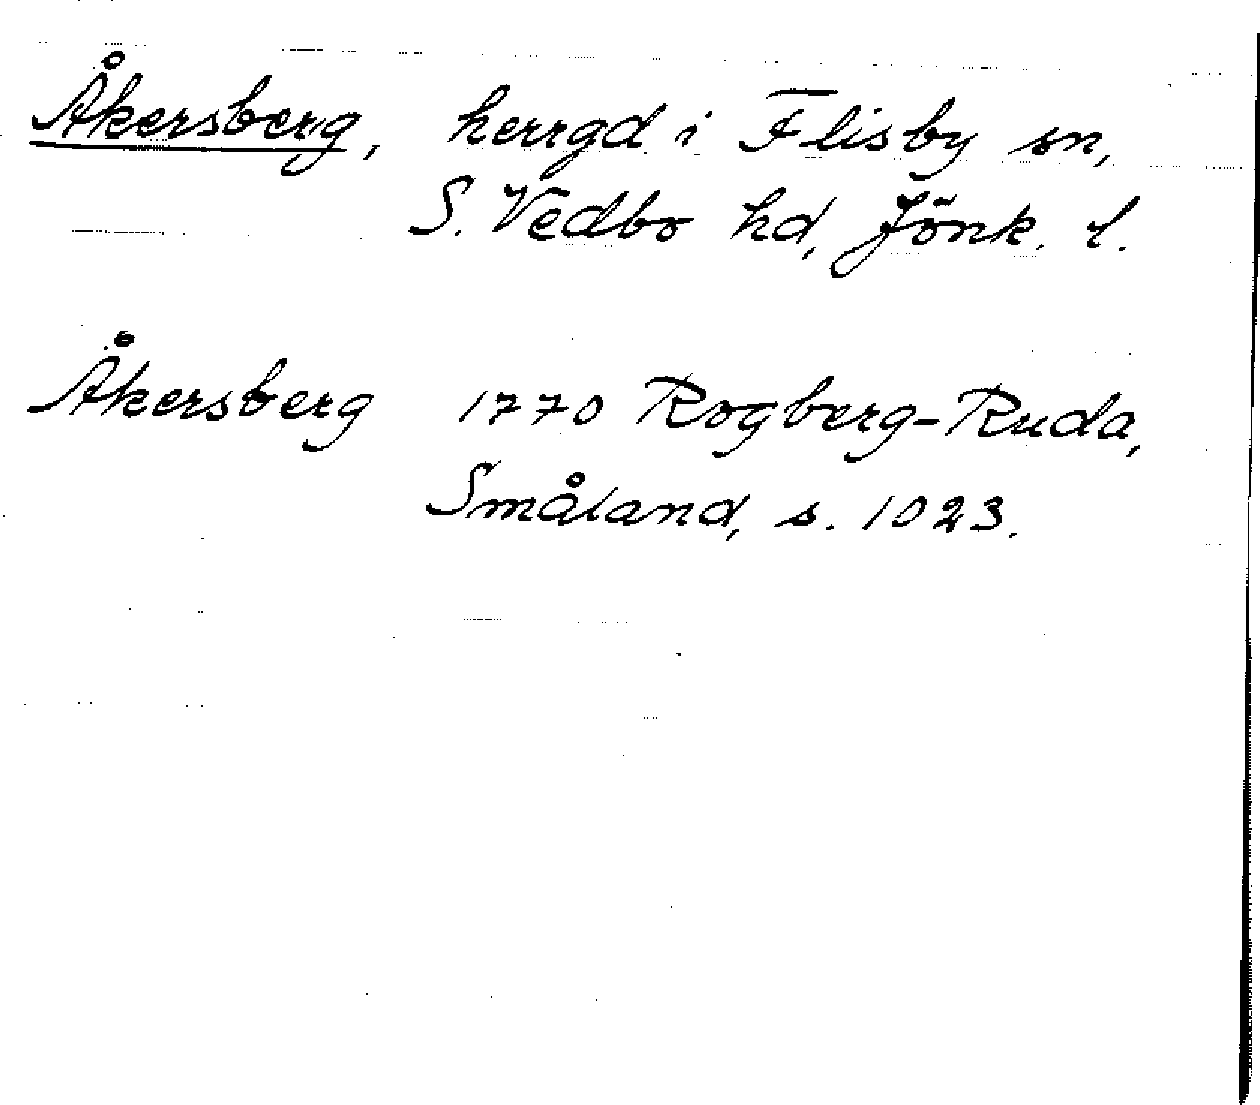 Åkersberg, herrgd i Flisby sn,
S. Vedbo hd, Jönk. l.
Åkersberg 1770 Rogberg-Ruda,
Småland, s. 1023.